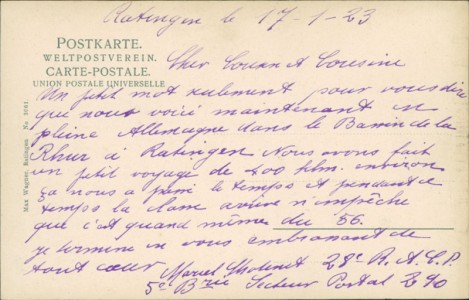 Ratingen le 17-1-23
POSTKARTE.
WELTPOSTVEREIN.
CARTE-POSTALE.
UNION POSTALE UNIVERSELLE
Max Wagner, Ratingen No 1081.
Cher Cousin et Cousine
Un petit mot seulement pour vous dire
que nous voici maintenant en
pleine Allemagne dans le Bassin de la
Rhur à Ratingen Nous avons fait
un petit voyage de 400 klm. environ
ça nous a passé le temps et pendant ce
temps la classe arrive n'empêche
que c'est quand même du 56.
je termine en vous embrassant de
tout cœur Marcel 28e R.A.C.P.
5e Brie Secteur Postal 290